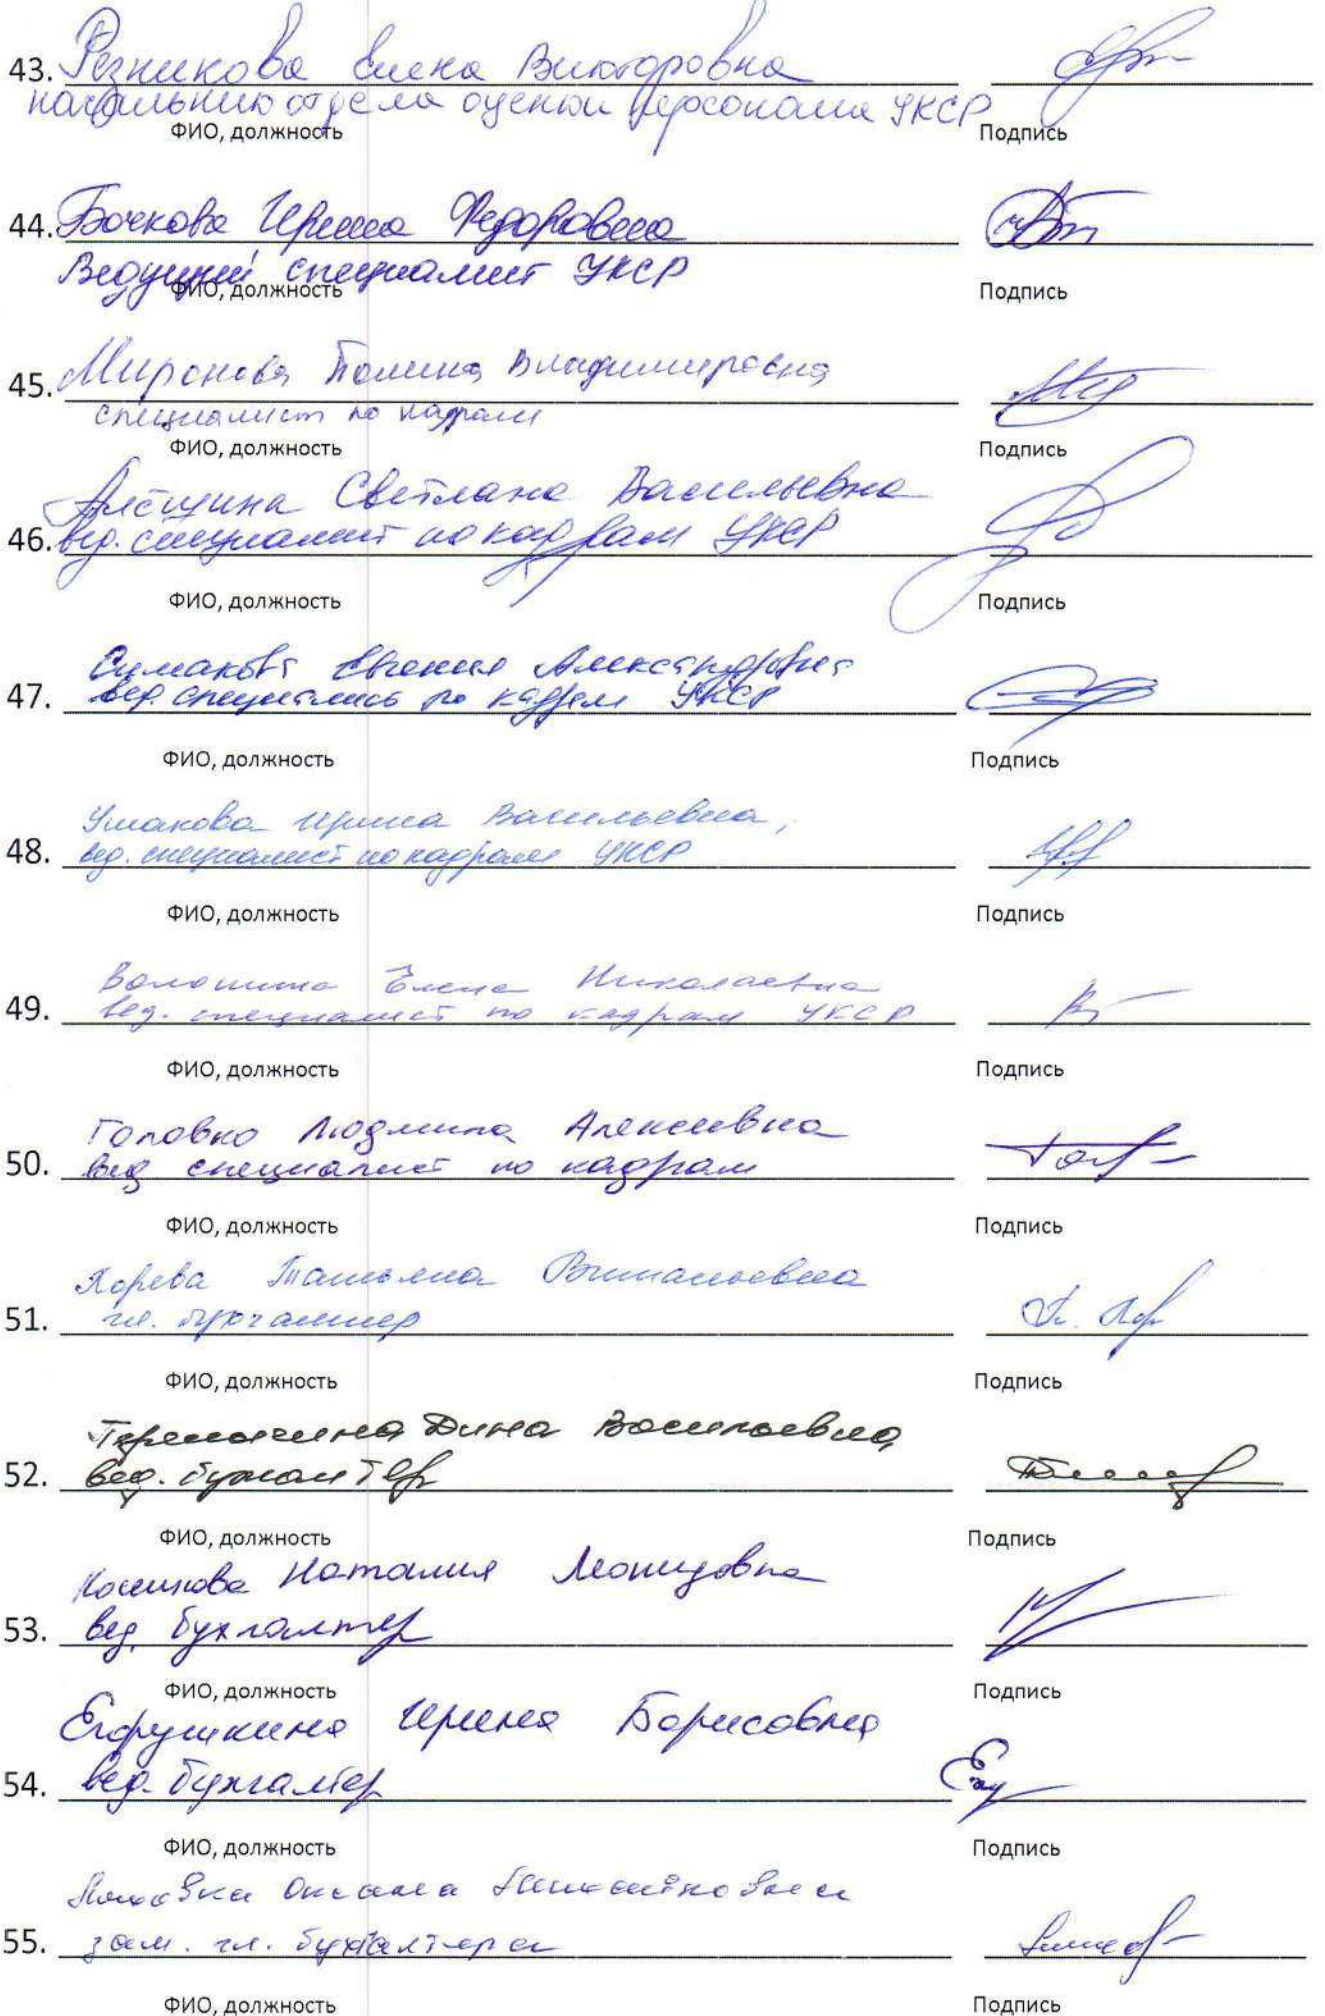 43. Резникова Елена Викторовна
начальник отдела оценки персонала УКСР
ФИО, должность Подпись
44. Бочкова Ирина Федоровна
Ведущий специалист УКСР
ФИО, должность Подпись
45. Миронова Полина Владимировна
специалист по кадрам
ФИО, должность Подпись
Алёшина Светлана Васильевна
46. вед. специалист по кадрам УКСР
ФИО, должность Подпись
Симакова Евгения Александровна
47. вед. специалист по кадрам УКСР
ФИО, должность Подпись
Ушакова Ирина Васильевна,
48. вед. специалист по кадрам УКСР
ФИО, должность Подпись
Волошина Елена Николаевна
49. вед. специалист по кадрам УКСР
ФИО, должность Подпись
Головко Людмила Алексеевна
50. вед специалист по кадрам
ФИО, должность Подпись
Хорева Татьяна Витальевна
51. гл. бухгалтер
ФИО, должность Подпись
Дина Васильевна
52. вед. бухгалтер
ФИО, должность Подпись
Наталия Леонидовна
53. вед. бухгалтер
ФИО, должность Подпись
Ирина Борисовна
54. вед. бухгалтер
ФИО, должность Подпись
Оксана
55. зам. гл. бухгалтера
ФИО, должность Подпись